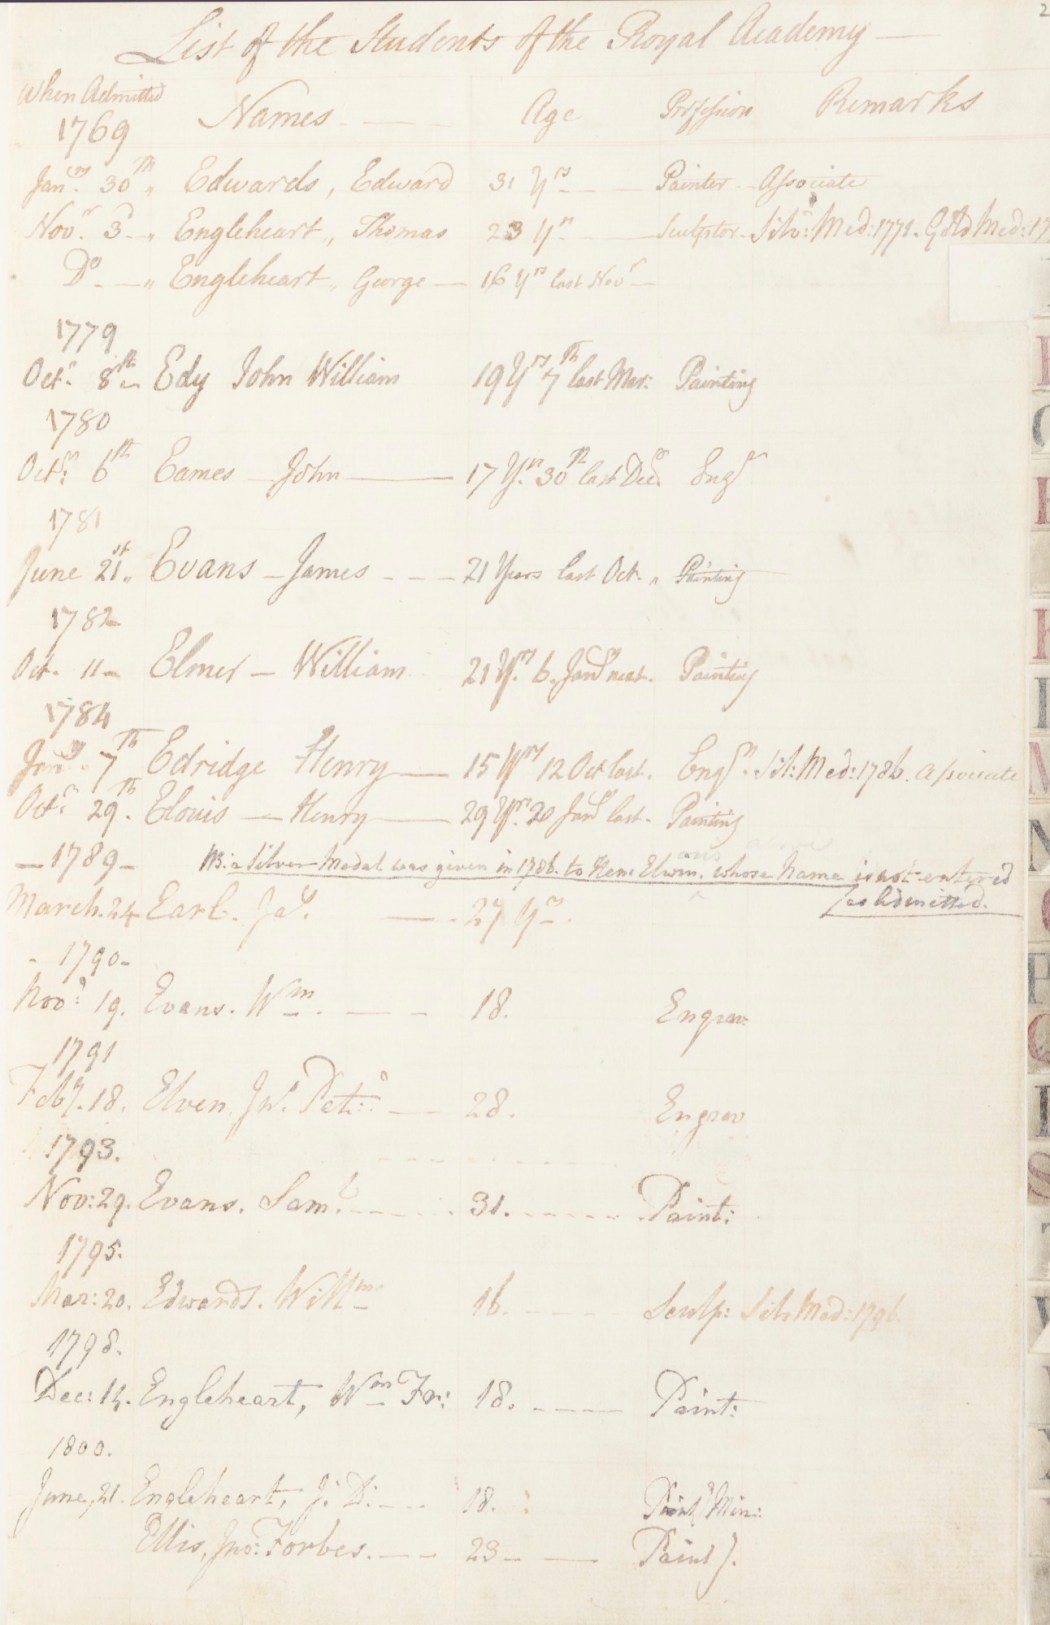 List of the Students of the Royal Academy
When Admitted Names Age Profession Remarks
1769
Jan.ry 30th " Edwards, Edward 31 Yrs Painter Associate
Nov.r 3d " Engleheart, Thomas 23 Yrs Sculptor. Silv.r Med: 1771. Gold Med: 17
Do " Engleheart, George 16 Yrs last Novr
1779
Octr. 8th Edy John William 19 Yrs 7th last Mar: Painting
1780
Octr. 6th Eames John 17 Yrs. 30th last Decr. Engr
1781
June 21st. Evans James 21 Years last Oct. " Painting
1782
Oct. 11 Elmer William 21 Yrs. 6. Jany next. Painting
1784
Jany. 7th Edridge Henry 15 Yrs 12 Oct last. Engr. Sil: Med: 1786. Associate
Octr. 29th. Elouis Henry 29 Yrs. 20 Jany last. Painting
1789 NB: a Silver Medal was given in 1786. to Hen: Elwin. whose Name is not entered
as Admitted.
March. 24 Earl. Jas. 27 Yrs.
1790
Novr. 19. Evans. Wm. 18. Engrav:
1791
Feby. 18. Elven. Jno. Petr. 28. Engrav
1793.
Nov: 29. Evans. Saml. 31. Paint:
1795.
Mar: 20. Edwards. Willm 16. Sculp: Sil: Med: 1796.
1798.
Dec: 14. Engleheart, Wm Fr: 18. Paint:
1800.
June, 21. Engleheart, J: D: 18. Paintr Min:
Ellis, Jno: Forbes. 23 Paintr.